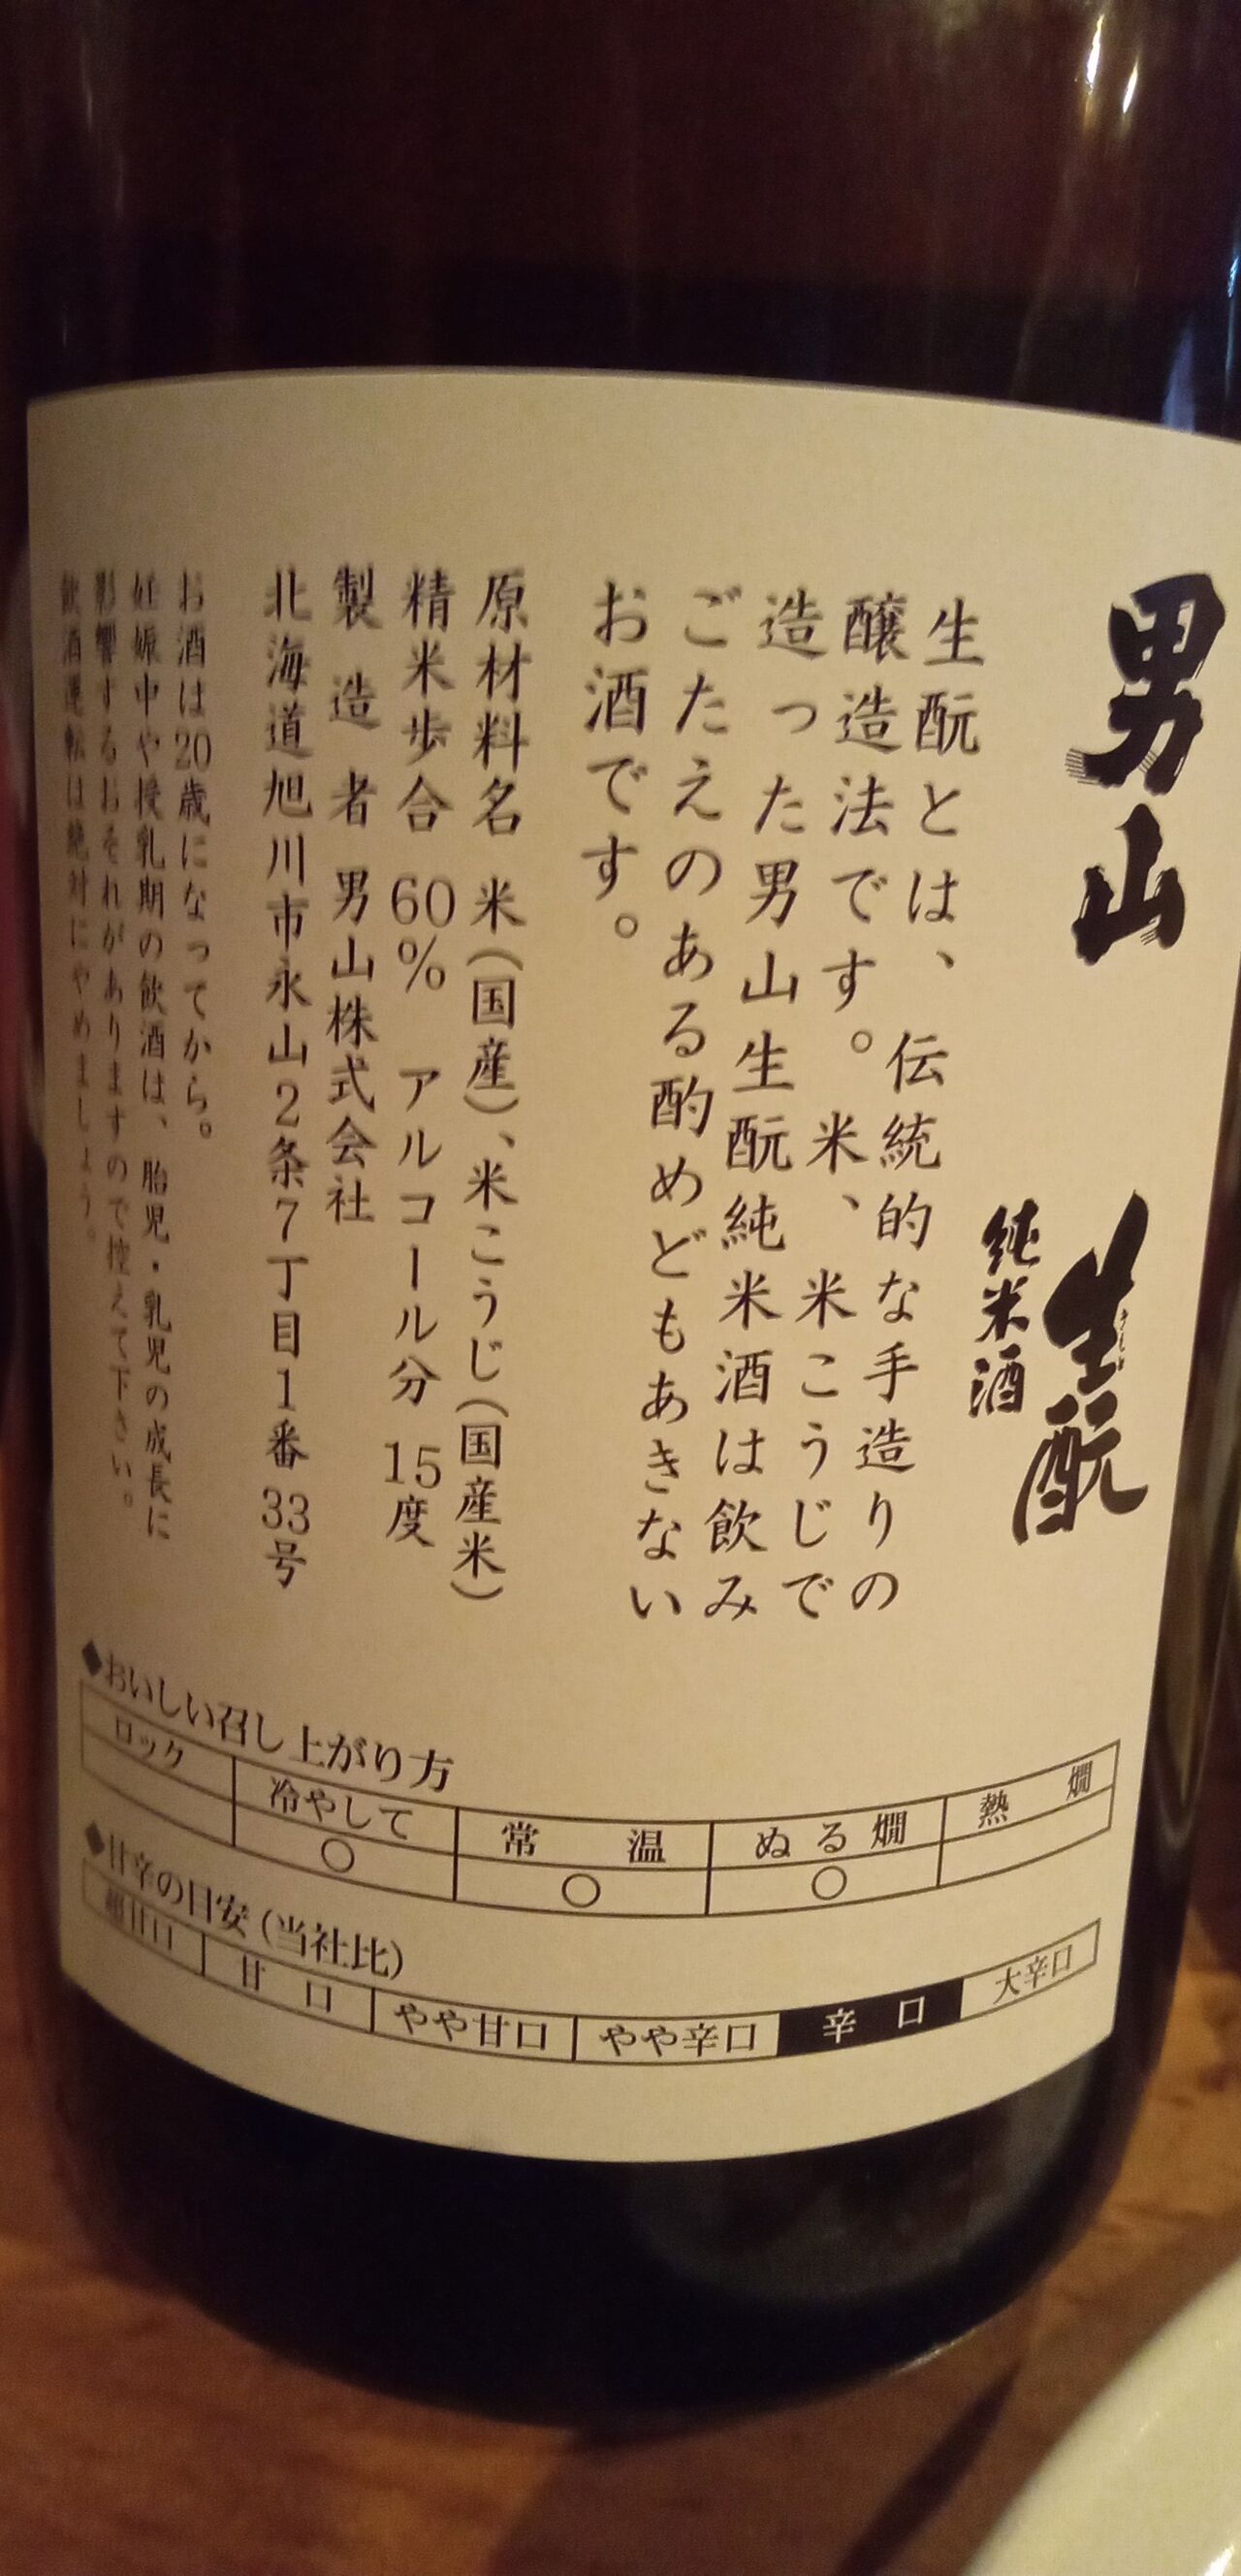 男山
生酛
きもと
純米酒
生酛とは、伝統的な手造りの
醸造法です。米、米こうじで
造った男山生酛純米酒は飲み
ごたえのある酌めどもあきない
お酒です。
原材料名 米(国産)、米こうじ(国産米)
精米歩合 60% アルコール分 15度
製造者 男山株式会社
北海道旭川市永山2条7丁目1番33号
お酒は20歳になってから。
妊娠中や授乳期の飲酒は、胎児・乳児の成長に
影響するおそれがありますので控えて下さい。
飲酒運転は絶対にやめましょう。
◆おいしい召し上がり方
ロック 冷やして 常温 ぬる燗 熱燗
○ ○ ○
◆甘辛の目安(当社比)
超甘口 甘口 やや甘口 やや辛口 辛口 大辛口